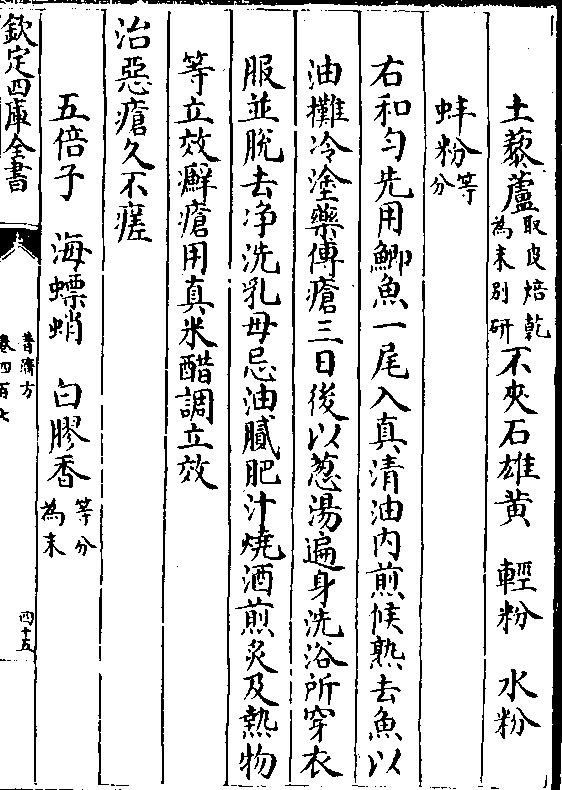 土藜蘆取皮焙乾為末别研不夾石雄黄　輕粉　水粉
蚌粉等分
右和勻先用鯽魚一尾入真清油内煎候熟去魚以
油攤冷塗藥傅瘡三日後以葱湯遍身洗浴所穿衣
服並脱去净洗乳母忌油膩肥汁燒酒煎炙及熱物
等立效癬瘡用真米醋調立效
治惡瘡久不瘥
五倍子　海螵蛸　白膠香等分為末
欽定四庫全書
普濟方
卷四百七
四十五